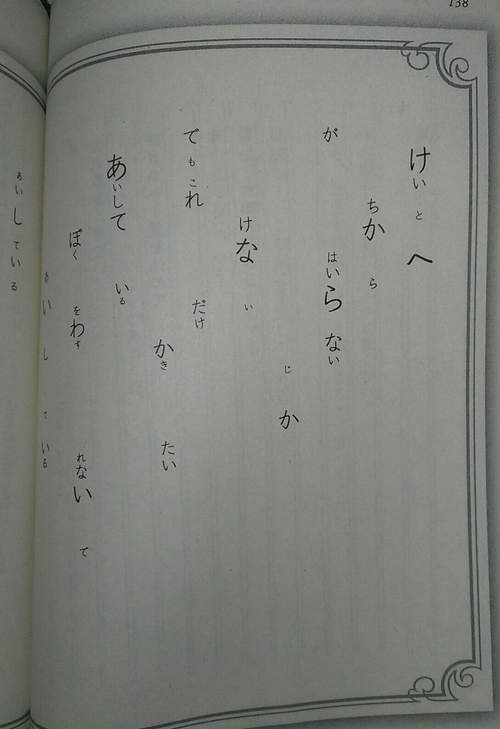 138
けいとへ
ちから
がはいらない
じか
けない
でもこれだけ
かきたい
あいしている
ぼくをわすれないで
あいしている
あいしている